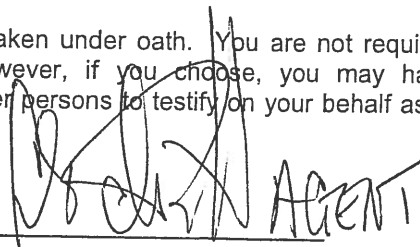 aken under oath. You are not requi
wever, if you choose, you may ha
er persons to testify on your behalf as
AGENT